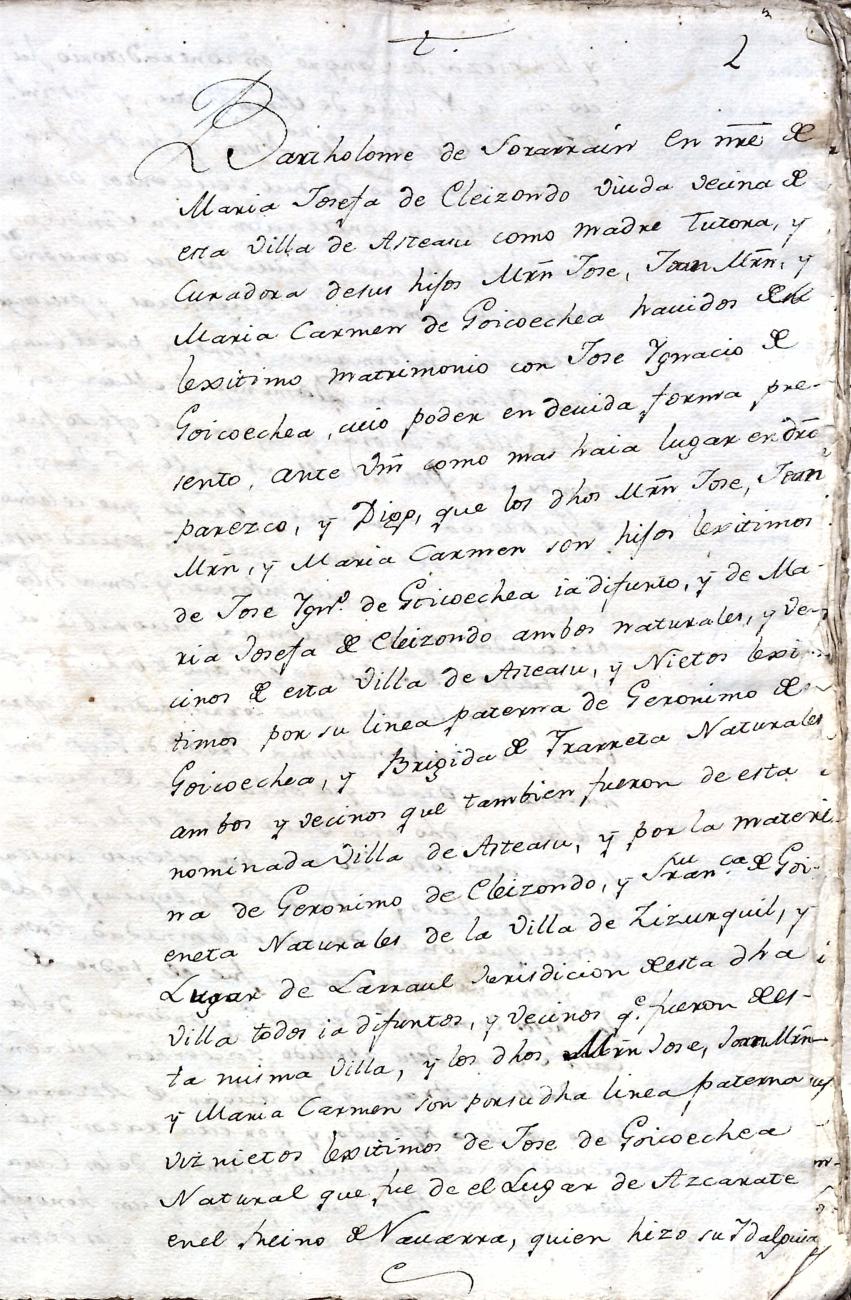 t.
2
Bartholome de Sorarrain en nre de
Maria Josefa de Eleizondo viuda vecina de
esta villa de Asteasu como madre tutora, y
Curadora desus hijos Mrn Jose, Juan Mrn, y
Maria Carmen de Goicoechea havidos de el
lexitimo matrimonio con Jose Ygnacio de
Goicoechea, cuio poder en devida forma pre-
sento, ante Vm como mas haia lugar en dro
parezco, y Digo, que los dhos Mrn Jose, Juan
Mrn, y Maria Carmen son hijos lexitimos
de Jose Ygno. de Goicoechea ia difunto, y de Ma-
ria Josefa de Eleizondo ambos naturales, y ve-
cinos de esta Villa de Asteasu, y Nietos lexi-
timos por su linea paterna de Geronimo de
Goicoechea, y Brigida de Yrarreta Naturales
ambos y vecinos que tambien fueron de esta
nominada Villa de Asteasu, y por la mater-
na de Geronimo de Eleizondo, y Franca de Goi-
eneta Naturales de la Villa de Zizurquil, y
Lugar de Larraul Jurisdicion de esta dha
Villa todos ia difuntos, y vecinos qe. fueron de es-
ta misma Villa, y los dhos, Mrn Jose, Juan Mrn
y Maria Carmen son por su dha linea paterna
viznietos lexitimos de Jose de Goicoechea
Natural que fue de el Lugar de Azcarate
en el Reino de Navarra, quien hizo su Ydalguia